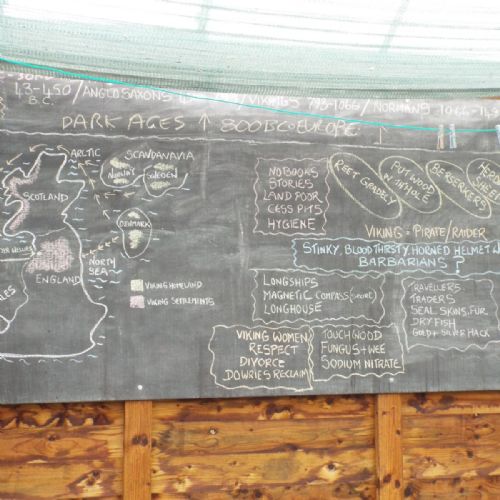 43-450 / ANGLO SAXONS / VIKINGS 793-1066 / NORMANS 1066-
B.C.
DARK AGES ↑ 800BC EUROPE
ARCTIC
SCANDANAVIA
NORWAY
SWEDEN
SCOTLAND
DENMARK
NORTH
SEA
ENGLAND
VIKING HOMELAND
VIKING SETTLEMENTS
NO BOOKS
STORIES
LAND POOR
CESS PITS
HYGIENE
REET GRADELY
PUT WOOD
BERSERKERS
VIKING = PIRATE/RAIDER
STINKY, BLOOD THIRSTY, HORNED HELMET
BARBARIANS?
LONGSHIPS
MAGNETIC COMPASS
LONGHOUSE
TRAVELLERS
TRADERS
SEAL SKINS, FUR
DRY FISH
GOLD + SILVER HACK
VIKING WOMEN
RESPECT
DIVORCE
DOWRIES RECLAIM
TOUCHWOOD
FUNGUS + WEE
SODIUM NITRATE